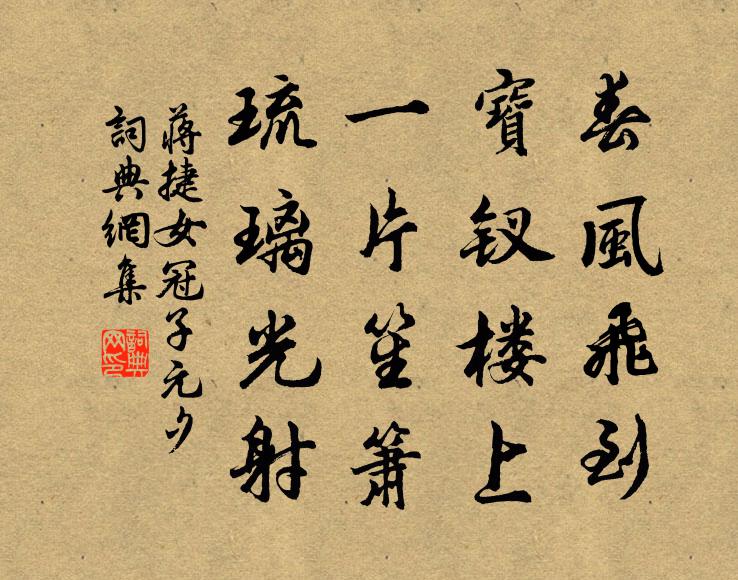 春風飛到
寶釵楼上
一片笙簫
琉璃光射
蔣捷女冠子元夕
詞典網集
詞典
网印